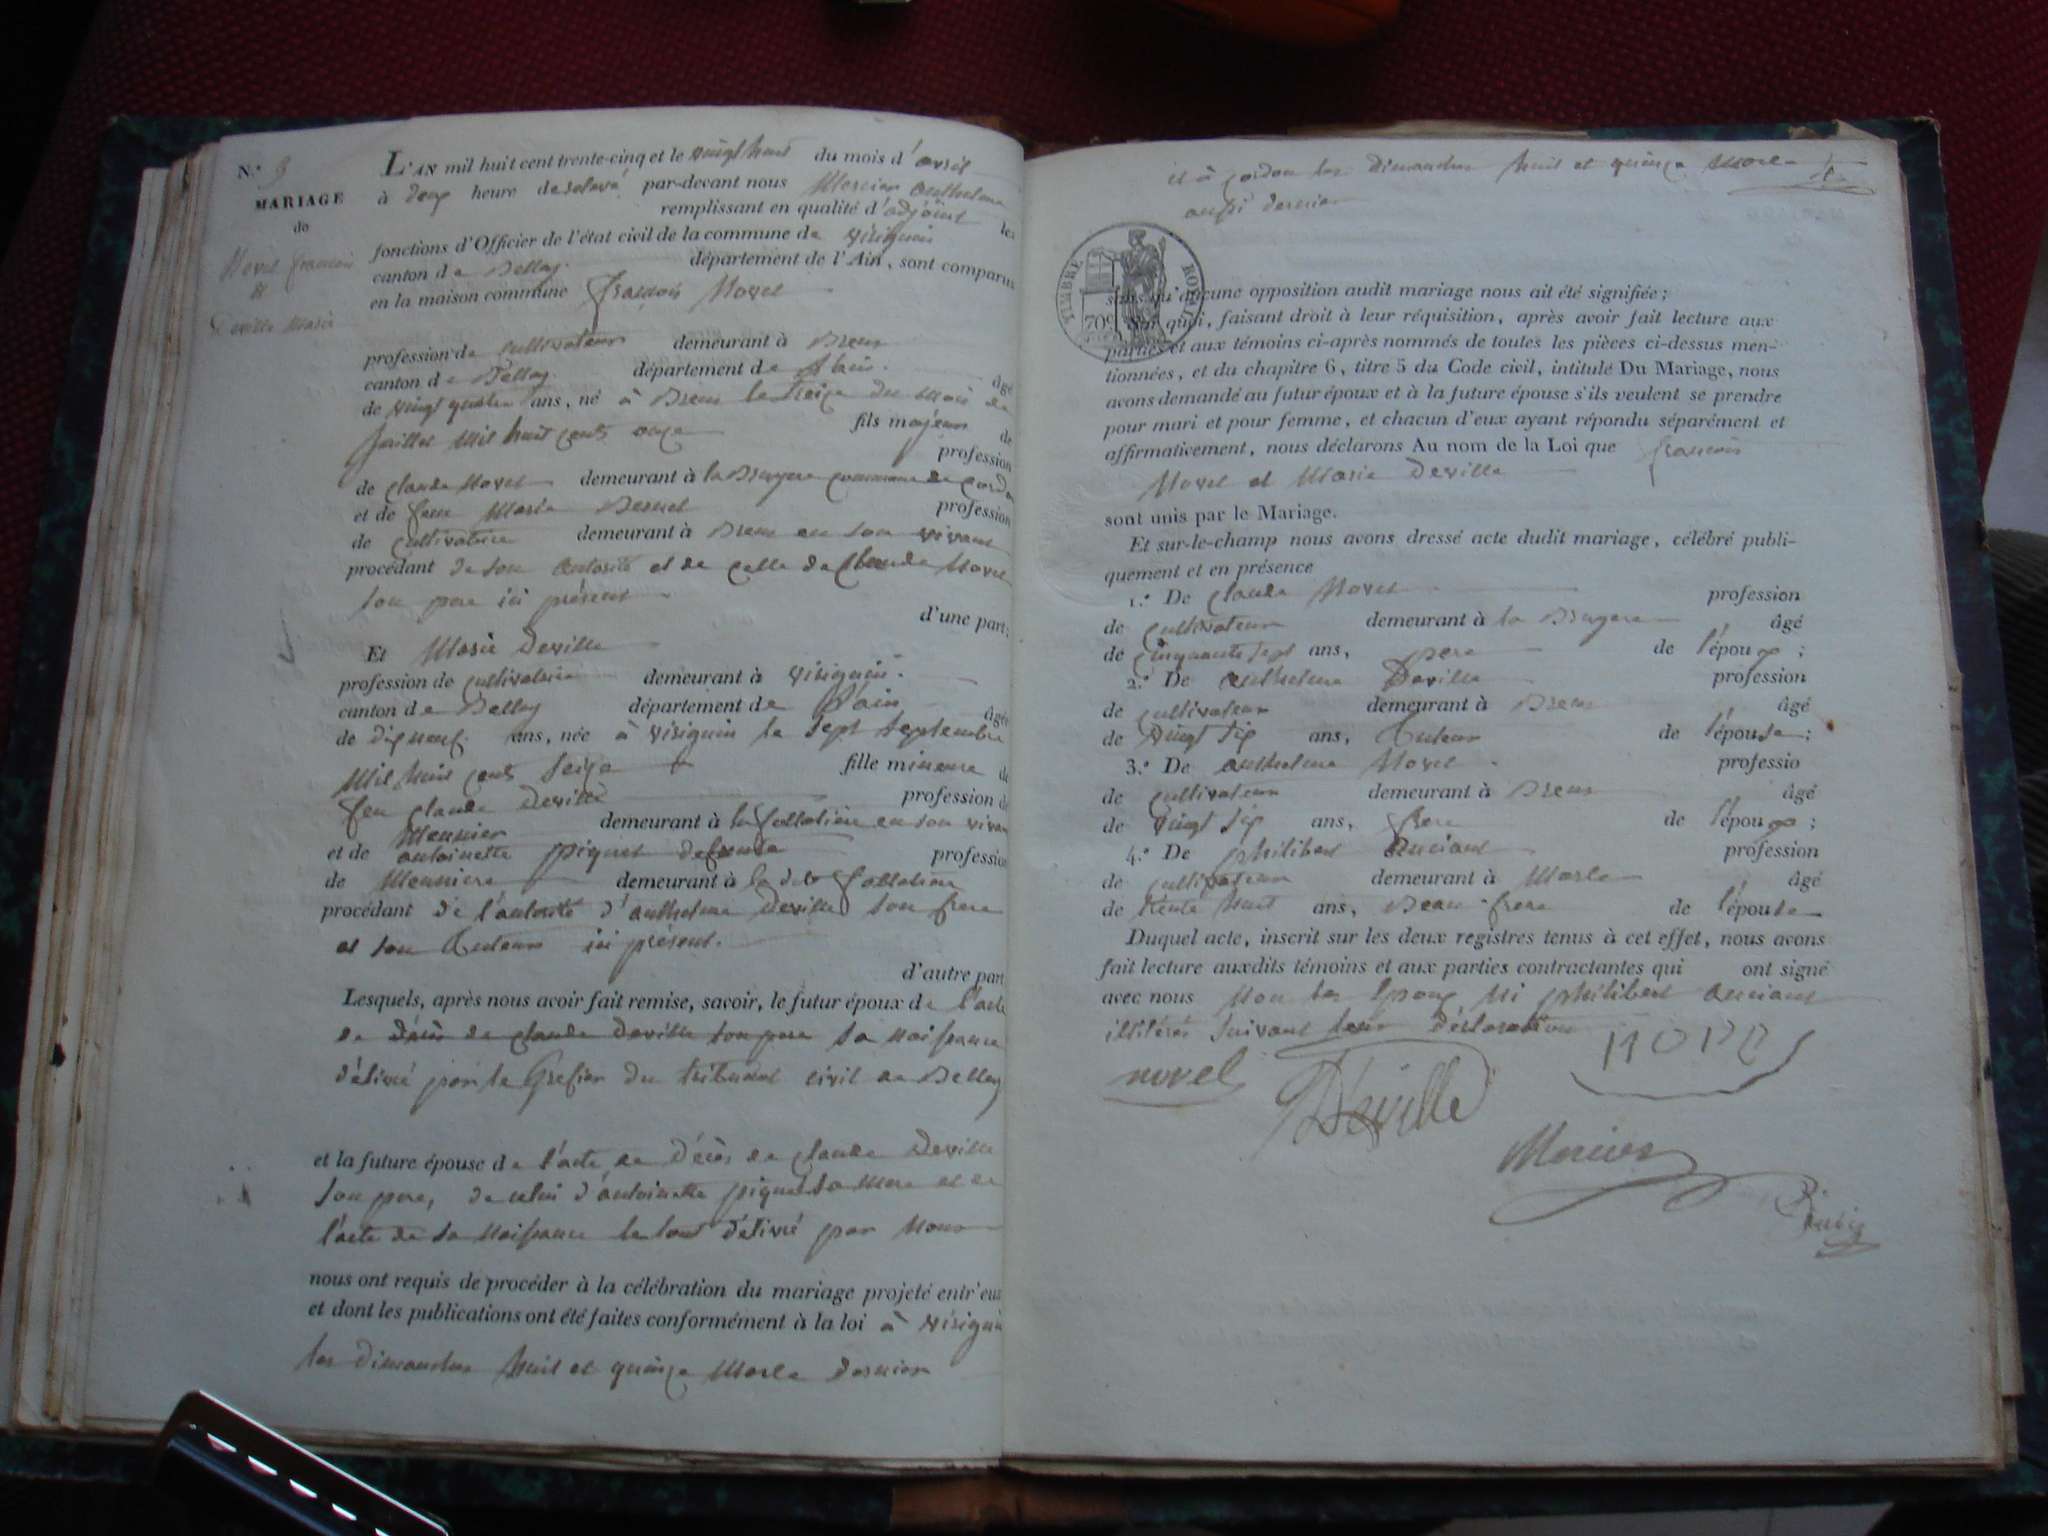 N.° 9
MARIAGE
de
Novel françois
et
Deville Marie
L'AN mil huit cent trente-cinq et le vingt huit du mois d'avril
à deux heure de relevé, par-devant nous Mercier anthelme
remplissant en qualité d'adjoint les
fonctions d'Officier de l'état civil de la commune de virignin
canton de Belley département de l'Ain, sont comparus
en la maison commune françois Novel
profession de cultivateur demeurant à Brens
canton de Belley département de l'Ain. âgé
de vingt quatre ans, né à Brens le treize du mois de
juillet mil huit cent onze fils majeur de
profession
de claude Novel demeurant à la Bruyere commune de Cordon
et de feue Marie profession
de cultivatrice demeurant à Brens en son vivant
procédant de son autorité et de celle de Claude Novel
son pere ici présent
d'une part;
Et Marie Deville
profession de cultivatrice demeurant à virignin
canton de Belley département de l'ain âgée
de dix neuf ans, née à virignin le sept septembre
mil huit cent seize fille mineure de
feu claude Deville profession de
Meunier demeurant à la en son vivant
et de antoinette piquet defunte profession
de Meuniere demeurant à la dite
procédant de l'autorité d'anthelme Deville son frere
et son tuteur ici présent.
d'autre part
Lesquels, après nous avoir fait remise, savoir, le futur époux de l'acte
de décès de claude Deville son pere sa naissance
délivré par le Grefier du tribunal civil de Belley
et la future épouse de l'acte de décès de claude Deville
son pere, de celui d'antoinette piquet sa mere et de
l'acte de sa naissance le tout délivré par nous
nous ont requis de procéder à la célébration du mariage projeté entr'eux
et dont les publications ont été faites conformément à la loi à virignin
les dimanches huit et quinze Marse dernier
et à cordon les dimanches huit et quinze Marse
aussi dernier
TIMBRE ROYAL
70c
sans qu'aucune opposition audit mariage nous ait été signifiée;
Sur quoi, faisant droit à leur réquisition, après avoir fait lecture aux
parties et aux témoins ci-après nommés de toutes les pièces ci-dessus men-
tionnées, et du chapitre 6, titre 5 du Code civil, intitulé Du Mariage, nous
avons demandé au futur époux et à la future épouse s'ils veulent se prendre
pour mari et pour femme, et chacun d'eux ayant répondu séparément et
affirmativement, nous déclarons Au nom de la Loi que françois
Novel et Marie Deville
sont unis par le Mariage.
Et sur-le-champ nous avons dressé acte dudit mariage, célébré publi-
quement et en présence
1.° De claude Novel profession
de cultivateur demeurant à la Bruyere âgé
de cinquante sept ans, pere de l'époux;
2.° De anthelme Deville profession
de cultivateur demeurant à Brens âgé
de vingt six ans, tuteur de l'épouse;
3.° De anthelme Novel profession
de cultivateur demeurant à Brens âgé
de vingt six ans, frere de l'époux;
4.° De philibert Anciant profession
de cultivateur demeurant à âgé
de trente huit ans, Beau-frere de l'épouse
Duquel acte, inscrit sur les deux registres tenus à cet effet, nous avons
fait lecture auxdits témoins et aux parties contractantes qui ont signé
avec nous non les époux ni philibert anciant
illitérés suivant leur déclaration
novel Deville
Mercier